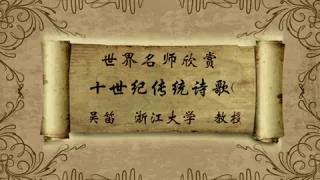 世界名师欣赏
十世纪传统诗歌(
吴笛 浙江大学 教授